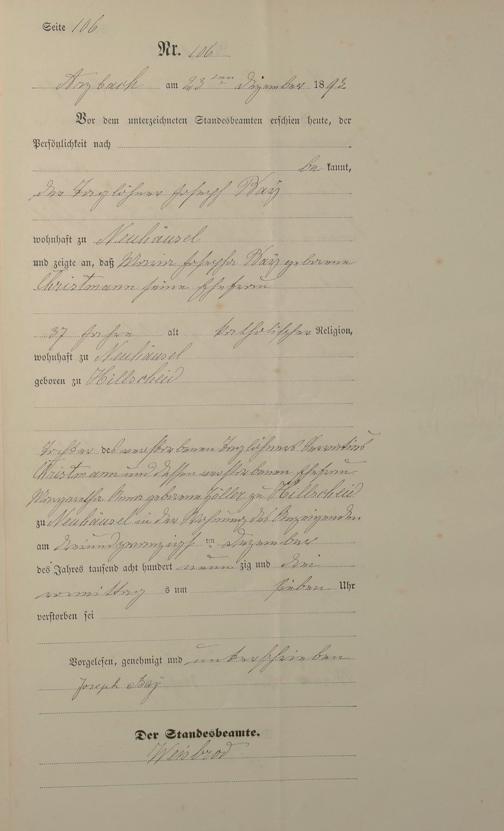 Seite 106
Nr. 106
Arzbach am 23ten Dezember 1893
Vor dem unterzeichneten Standesbeamten erschien heute, der
Persönlichkeit nach
be kannt,
der Taglöhner Joseph Bay
wohnhaft zu Neuhäusel
und zeigte an, daß Maria Josepha Bay geborene
Christmann seine Ehefrau
37 Jahre alt katholischer Religion,
wohnhaft zu Neuhäusel
geboren zu Hillscheid
Tochter des verstorbenen Taglöhners
Christmann und dessen verstorbenen Ehefrau
Margaretha Anna geborene Göller zu Hillscheid
zu Neuhäusel in der Wohnung des Anzeigenden
am dreiundzwanzigsten Dezember
des Jahres tausend acht hundert neunzig und drei
vormittags um sieben Uhr
verstorben sei
Vorgelesen, genehmigt und unterschrieben
Joseph Bay
Der Standesbeamte.
Weinbrod